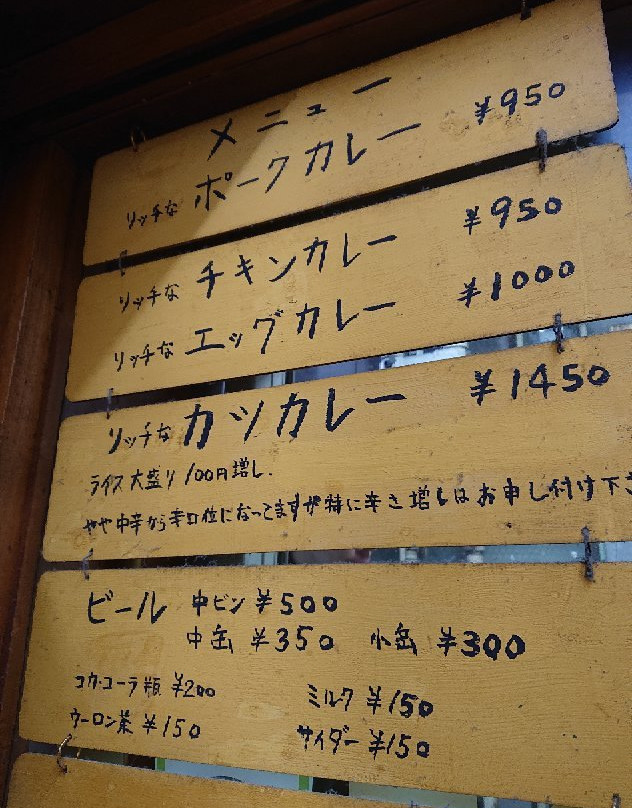 メニュー
リッチな ポークカレー ¥950
リッチな チキンカレー ¥950
リッチな エッグカレー ¥1000
リッチな カツカレー ¥1450
ライス大盛り100円増し.
やや中辛から辛口位になってますが特に辛さ増しはお申し付け下さ
ビール 中ビン ¥500
中缶 ¥350 小缶 ¥300
コカ・コーラ瓶 ¥200 ミルク ¥150
ウーロン茶 ¥150 サイダー ¥150